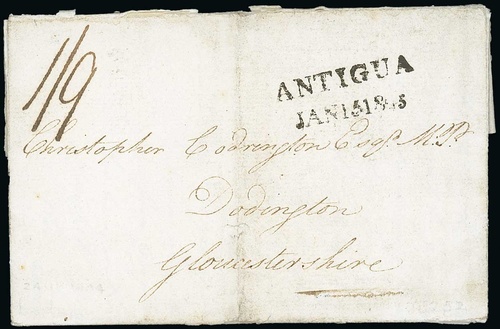 1/9
ANTIGUA
Christopher Codrington Esqr. M.P.
Dodington
Gloucestershire